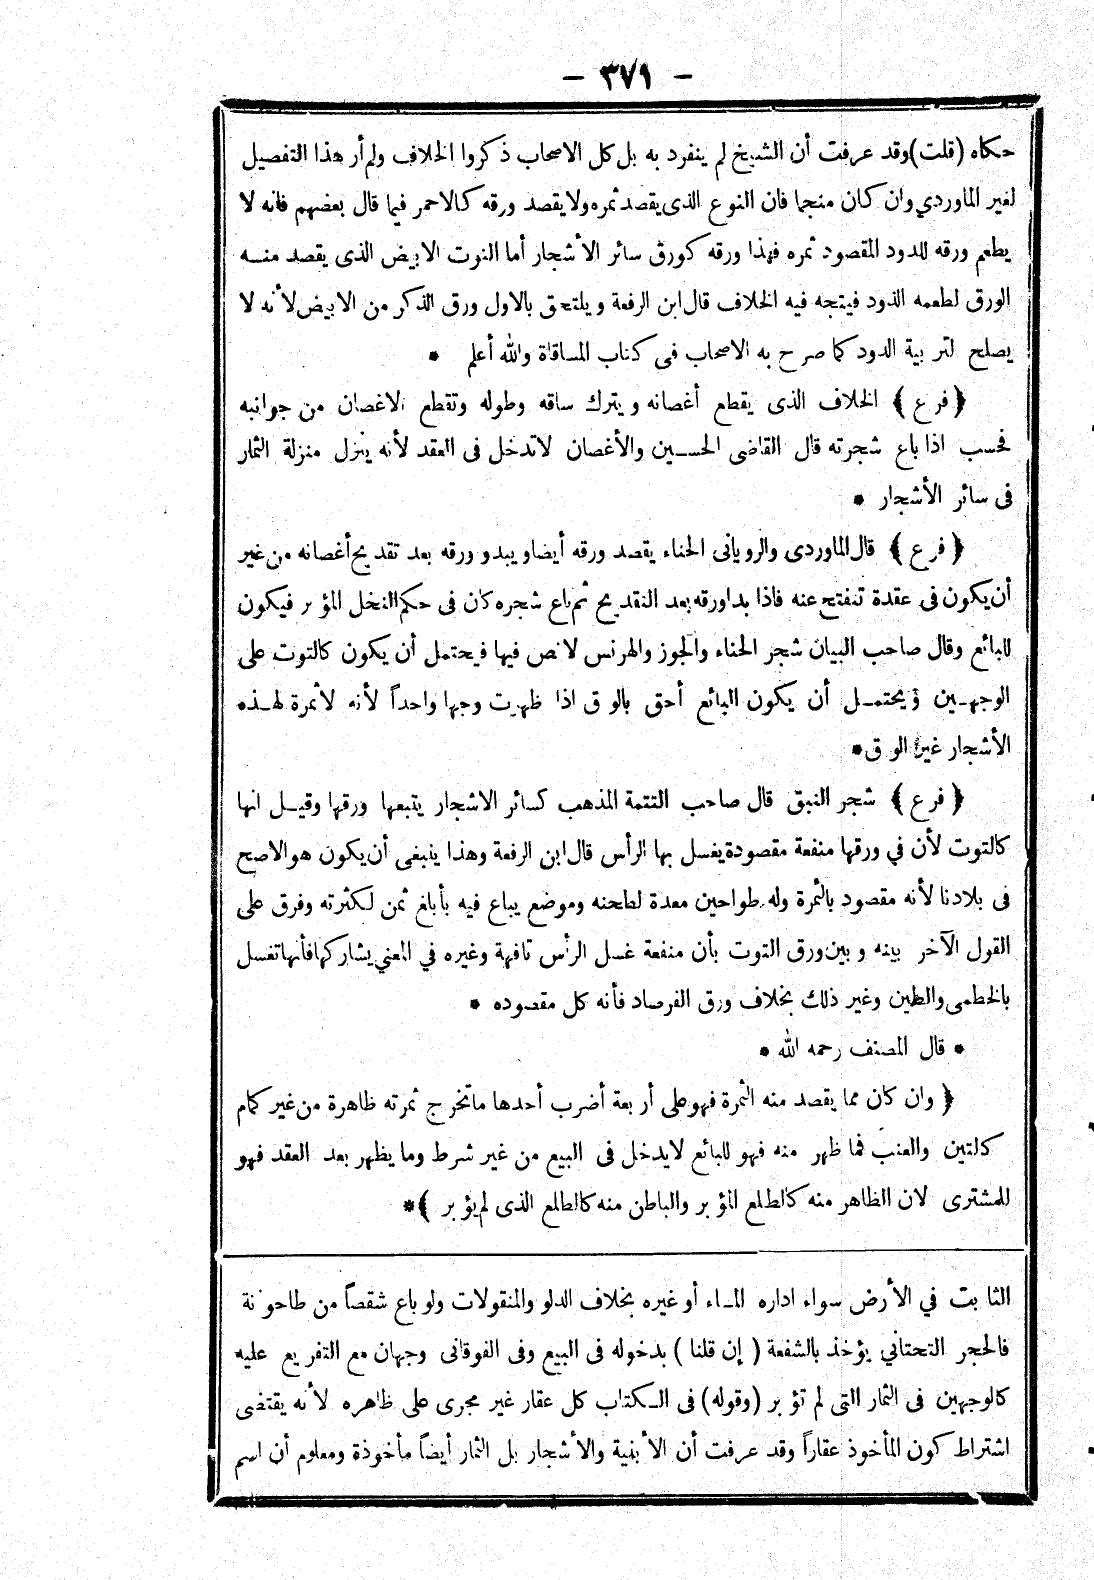 — ٣٧١ —
حكاه (قلت) وقد عرفت أن الشيخ لم ينفرد به بل كل الاصحاب ذكروا الخلاف ولم أر هذا التفصيل
لغير الماوردي وان كان منجما فان النوع الذى يقصد ثمره ولا يقصد ورقه كالاحمر فيما قال بعضهم فانه لا
يطعم ورقه للدود المقصود ثمره فهذا ورقه كورق سائر الأشجار أما التوت الابيض الذى يقصد منه
الورق لطعمه الدود فيتجه فيه الخلاف قال ابن الرفعة ويلتحق بالاول ورق الذكر من الابيض لأنه لا
يصلح لتربية الدود كما صرح به الاصحاب فى كتاب المساقاة والله أعلم *
﴿ فرع ﴾ الخلاف الذى يقطع أغصانه ويترك ساقه وطوله وتقطع الاغصان من جوانبه
فحسب اذا باع شجرته قال القاضى الحسين والأغصان لا تدخل فى العقد لأنه ينزل منزلة الثمار
فى سائر الأشجار *
﴿ فرع ﴾ قال الماوردى والرويانى الحناء يقصد ورقه أيضا ويبدو ورقه بعد تقديح أغصانه من غير
أن يكون فى عقدة تنفتح عنه فاذا بدا ورقه بعد التقديح ثم باع شجره كان فى حكم النخل المؤبر فيكون
للبائع وقال صاحب البيان شجر الحناء والجوز والهرنس لا نص فيها فيحتمل أن يكون كالتوت على
الوجهين ويحتمل أن يكون البائع أحق بالورق اذا ظهرت وجها واحداً لأنه لا ثمرة لهذه
الأشجار غير الورق *
﴿ فرع ﴾ شجر النبق قال صاحب التتمة المذهب كسائر الاشجار يتبعها ورقها وقيل انها
كالتوت لأن في ورقها منفعة مقصودة يغسل بها الرأس قال ابن الرفعة وهذا ينبغى أن يكون هو الاصح
فى بلادنا لأنه مقصود بالثمرة وله طواحين معدة لطحنه وموضع يباع فيه بأبلغ ثمن لكثرته وفرق على
القول الآخر بينه وبين ورق التوت بأن منفعة غسل الرأس تافهة وغيره في المعني يشاركها فأنها تغسل
بالخطمى والطين وغير ذلك بخلاف ورق الفرصاد فأنه كل مقصوده *
* قال المصنف رحمه الله *
﴿ وان كان مما يقصد منه الثمرة فهو على أربعة أضرب أحدها ما تخرج ثمرته ظاهرة من غير كمام
كالتين والعنب فما ظهر منه فهو للبائع لا يدخل فى البيع من غير شرط وما يظهر بعد العقد فهو
للمشترى لان الظاهر منه كالطلع المؤبر والباطن منه كالطلع الذى لم يؤبر ﴾ *
الثابت في الأرض سواء اداره الماء أو غيره بخلاف الدلو والمنقولات ولو باع شقصاً من طاحونة
فالحجر التحتاني يؤخذ بالشفعة (إن قلنا) بدخوله فى البيع وفى الفوقانى وجهان مع التفريع عليه
كالوجهين فى الثمار التى لم تؤبر (وقوله) فى الكتاب كل عقار غير مجرى على ظاهره لأنه يقتضى
اشتراط كون المأخوذ عقاراً وقد عرفت أن الأبنية والأشجار بل الثمار أيضاً مأخوذة ومعلوم أن اسم